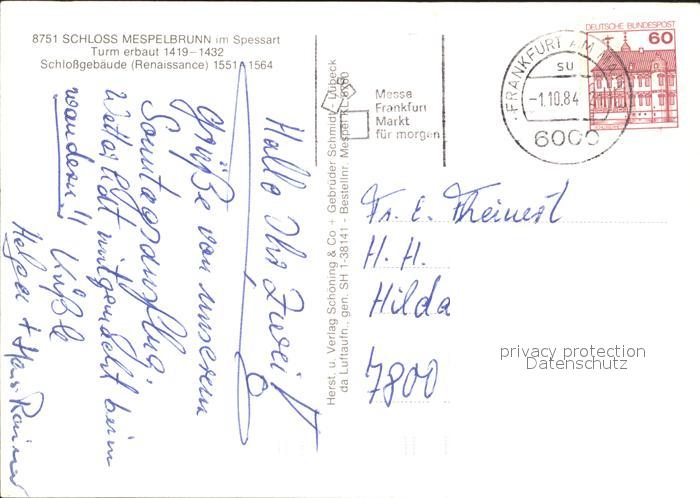 8751 SCHLOSS MESPELBRUNN im Spessart
Turm erbaut 1419–1432
Schloßgebäude (Renaissance) 1551–1564
Hallo Ihr Zwei!
Grüße von unserem
Sonntagsausflug.
Wetter lädt nicht gerade ein beim
wandern!! Küßle
Helga + Hans Rainer
Herst. u. Verlag Schöning & Co + Gebrüder Schmidt - Lübeck
da Luftaufn., gen. SH 1-38141 - Bestellnr. Mesper KL 8760
Messe
Frankfurt
Markt
für morgen
FRANKFURT AM MAIN
su
-1.10.84
6000
DEUTSCHE BUNDESPOST
60
Fr. E. Theinert
H. H.
Hilda
7800
privacy protection
Datenschutz